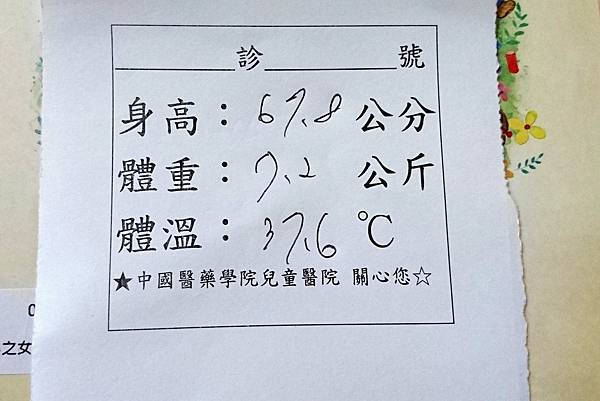 ______診______號
身高：67.8 公分
體重：7.2 公斤
體溫：37.6 ℃
★中國醫藥學院兒童醫院 關心您☆
0
之女